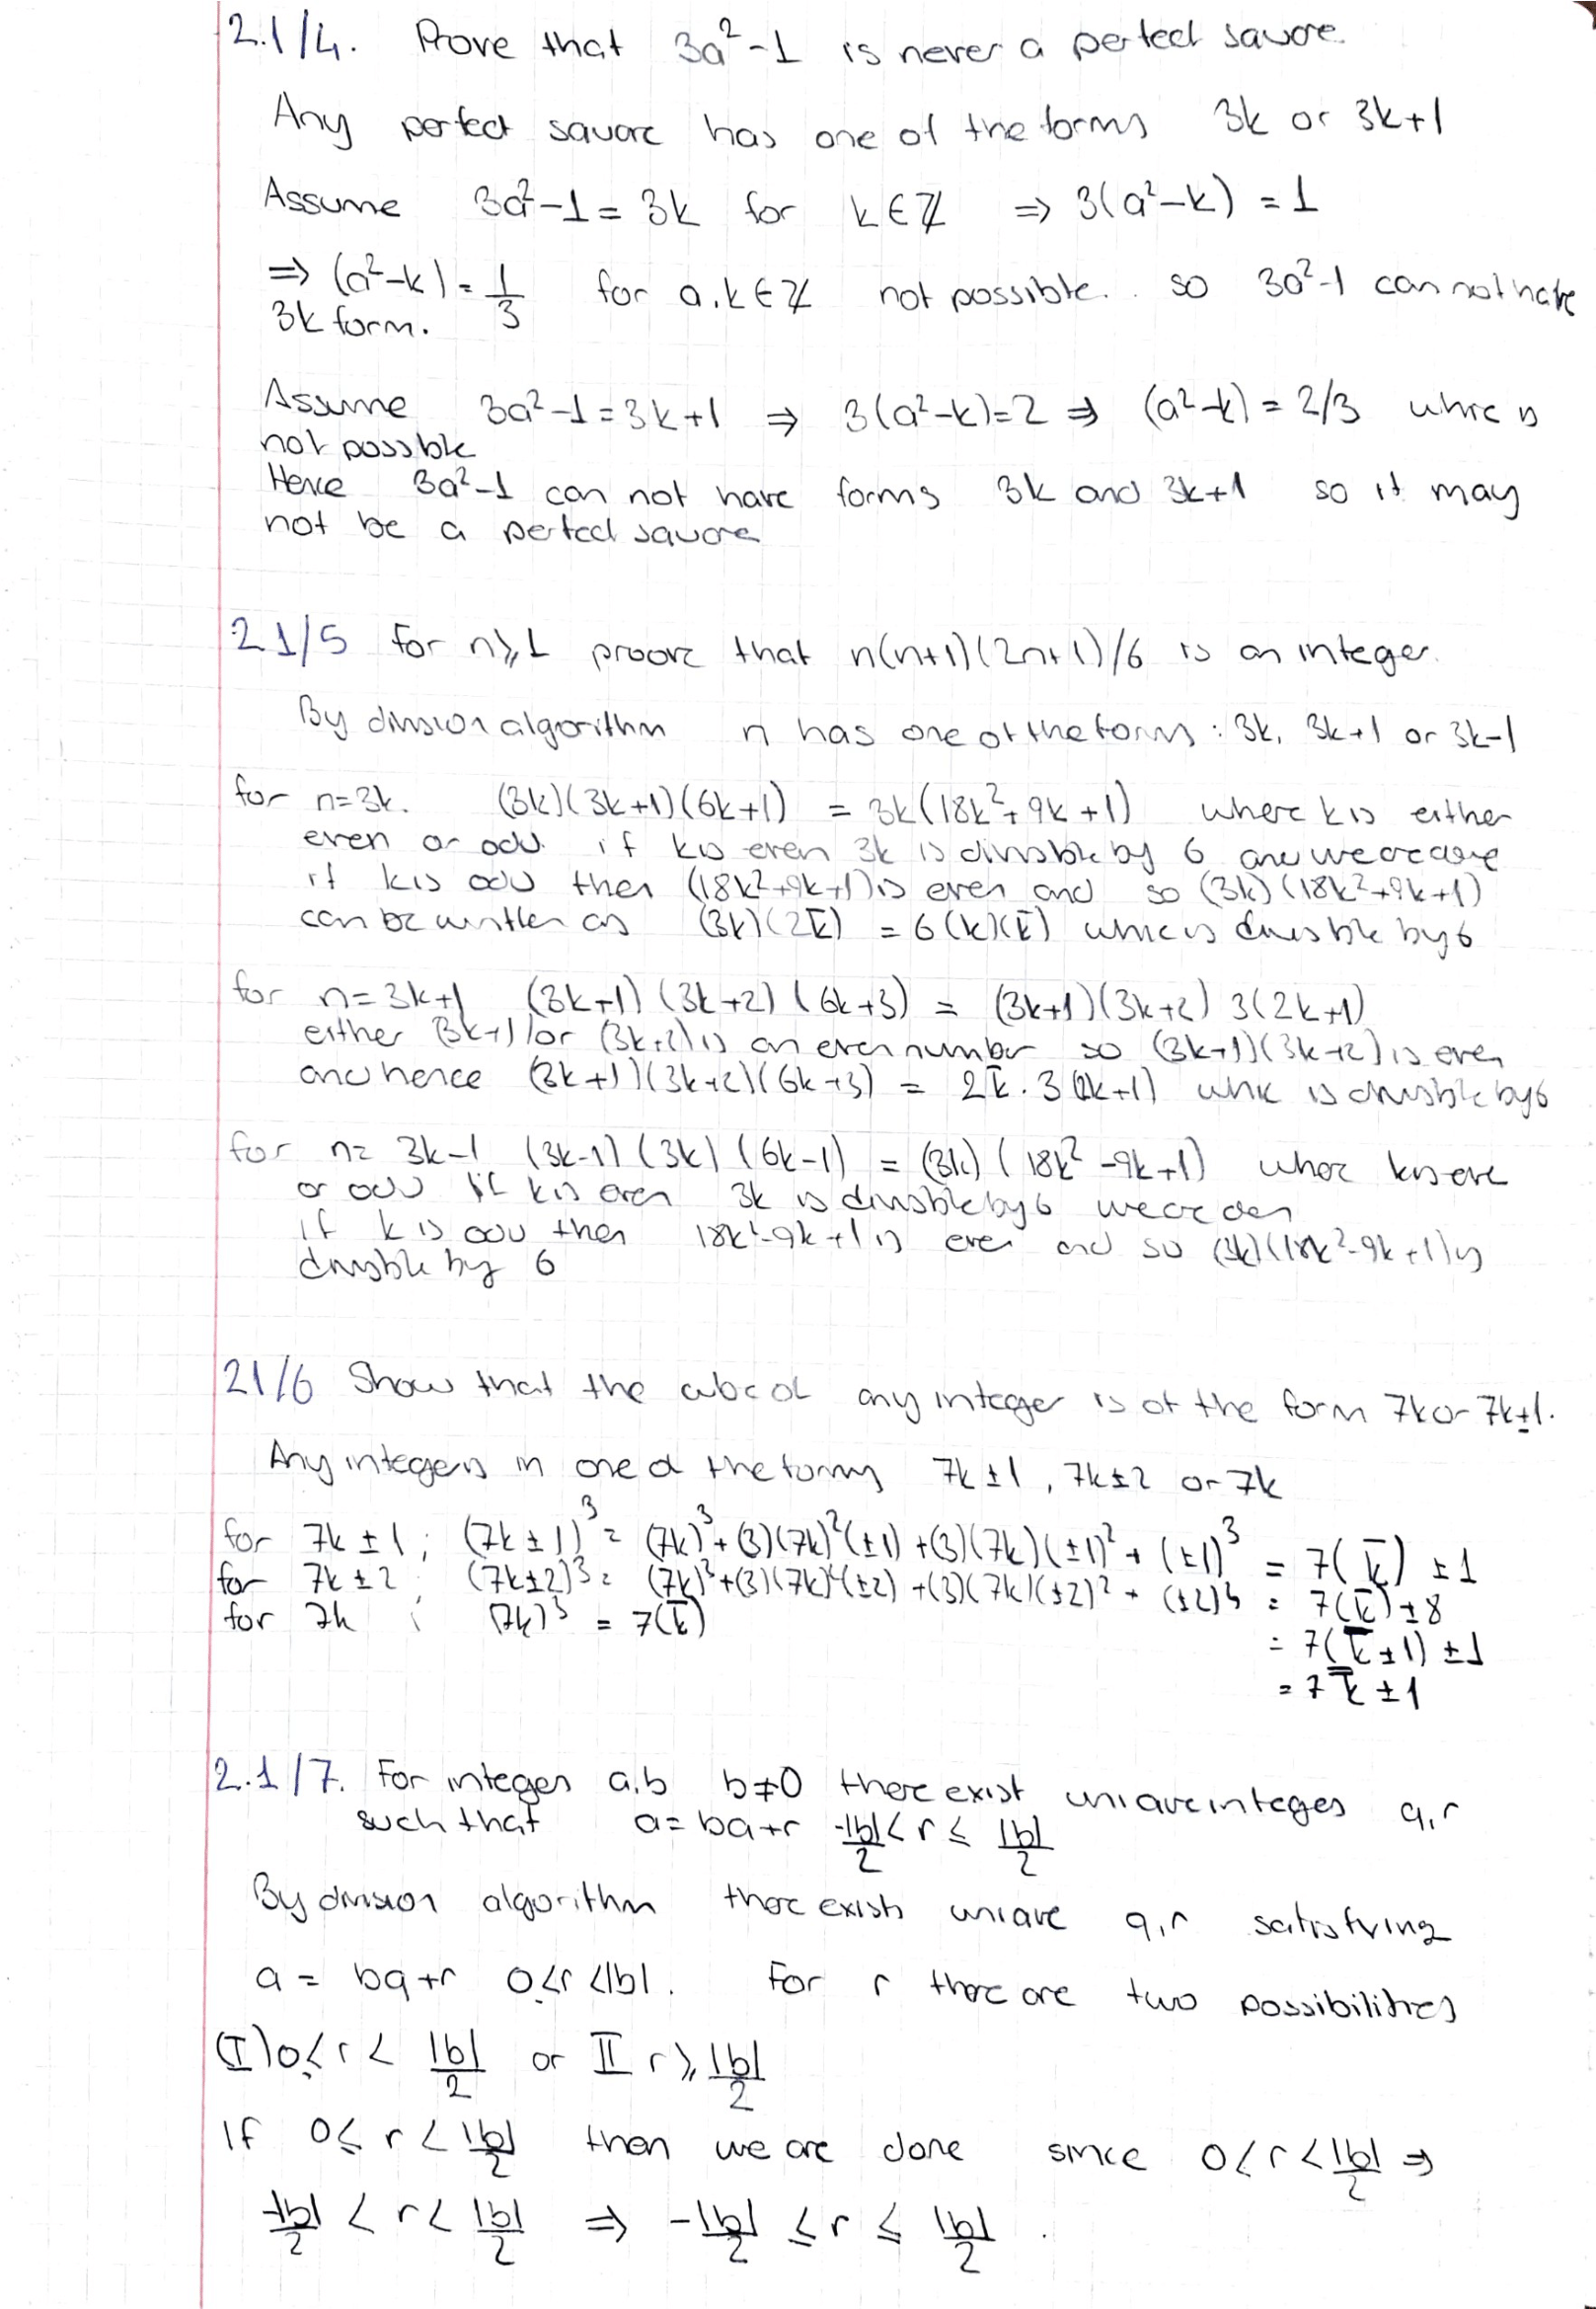 2.1/4. Prove that 3a²-1 is never a perfect square.
Any perfect square has one of the forms 3k or 3k+1
Assume 3a²-1 = 3k for k∈ℤ ⇒ 3(a²-k) = 1
⇒ (a²-k) = 1/3 for a,k∈ℤ not possible. so 3a²-1 can not have
3k form.
Assume 3a²-1=3k+1 ⇒ 3(a²-k)=2 ⇒ (a²-k) = 2/3 whic is
not possble
Hence 3a²-1 can not have forms 3k and 3k+1 so it may
not be a perfect square
2.1/5 For n≥1 proove that n(n+1)(2n+1)/6 is an integer.
By division algorithm n has one of the forms : 3k, 3k+1 or 3k-1
for n=3k. (3k)(3k+1)(6k+1) = 3k(18k²+9k+1) where k is either
even or odd. if k is even 3k is divisble by 6 and we are done
if k is odd then (18k²+9k+1) is even and so (3k)(18k²+9k+1)
can be written as (3k)(2k̅) = 6(k)(k̅) which is divisble by 6
for n=3k+1 (3k+1)(3k+2)(6k+3) = (3k+1)(3k+2) 3(2k+1)
either (3k+1) or (3k+2) is an even number so (3k+1)(3k+2) is even
and hence (3k+1)(3k+2)(6k+3) = 2k̅.3(2k+1) whic is divisble by 6
for n= 3k-1 (3k-1)(3k)(6k-1) = (3k)(18k²-9k+1) where k is eve
or odd if k is even 3k is divisble by 6 we are don
if k is odd then 18k²-9k+1 is even and so (3k)(18k²-9k+1) is
divisble by 6
2.1/6 Show that the cube of any integer is of the form 7k or 7k±1.
Any integer is in one of the forms 7k±1, 7k±2 or 7k
for 7k±1 ; (7k±1)³ = (7k)³+(3)(7k)²(±1)+(3)(7k)(±1)²+(±1)³ = 7(k̅) ±1
for 7k±2 ; (7k±2)³ = (7k)³+(3)(7k)²(±2)+(3)(7k)(±2)²+(±2)³ = 7(k̅)±8
for 7k ; (7k)³ = 7(k̅)
= 7(k̅±1) ±1
= 7k̿ ±1
2.1/7. For integers a,b b≠0 there exist unique integes q,r
such that a=bq+r -|b|/2 < r ≤ |b|/2
By division algorithm there exists unique q,r satisfying
a = bq+r 0≤r<|b|. For r there are two possibilities
(I) 0≤r< |b|/2 or II r≥|b|/2
If 0≤r<|b|/2 then we are done since 0<r<|b|/2 ⇒
-|b|/2 < r < |b|/2 ⇒ -|b|/2 ≤ r ≤ |b|/2 .